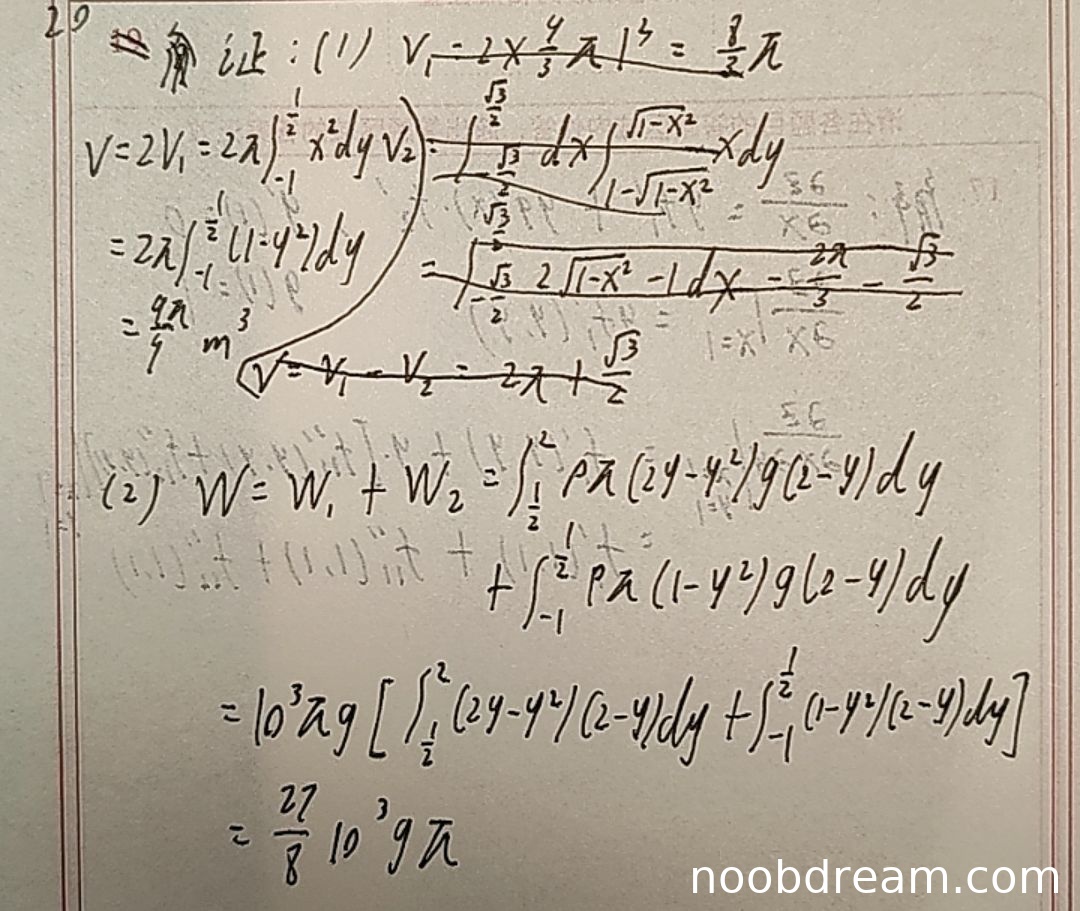 20
证:(1) V₁ = 2×4/3 π 1³ = 8/3 π
V=2V₁=2π∫_{-1}^{1/2} x²dy V₂ = ∫_{-√3/2}^{√3/2} dx ∫_{1-√(1-x²)}^{√(1-x²)} xdy
=2π∫_{-1}^{1/2} (1-y²)dy = ∫_{-√3/2}^{√3/2} 2√(1-x²) -1 dx = 2π/3 - √3/2
= 9π/4 m³
V = V₁ - V₂ = 2π + √3/2
(2) W = W₁ + W₂ = ∫_{1/2}^{2} ρπ(2y-y²)g(2-y)dy
+ ∫_{-1}^{1/2} ρπ(1-y²)g(2-y)dy
= 10³πg [∫_{1/2}^{2} (2y-y²)(2-y)dy + ∫_{-1}^{1/2} (1-y²)(2-y)dy]
= 27/8 10³gπ
noobdream.com